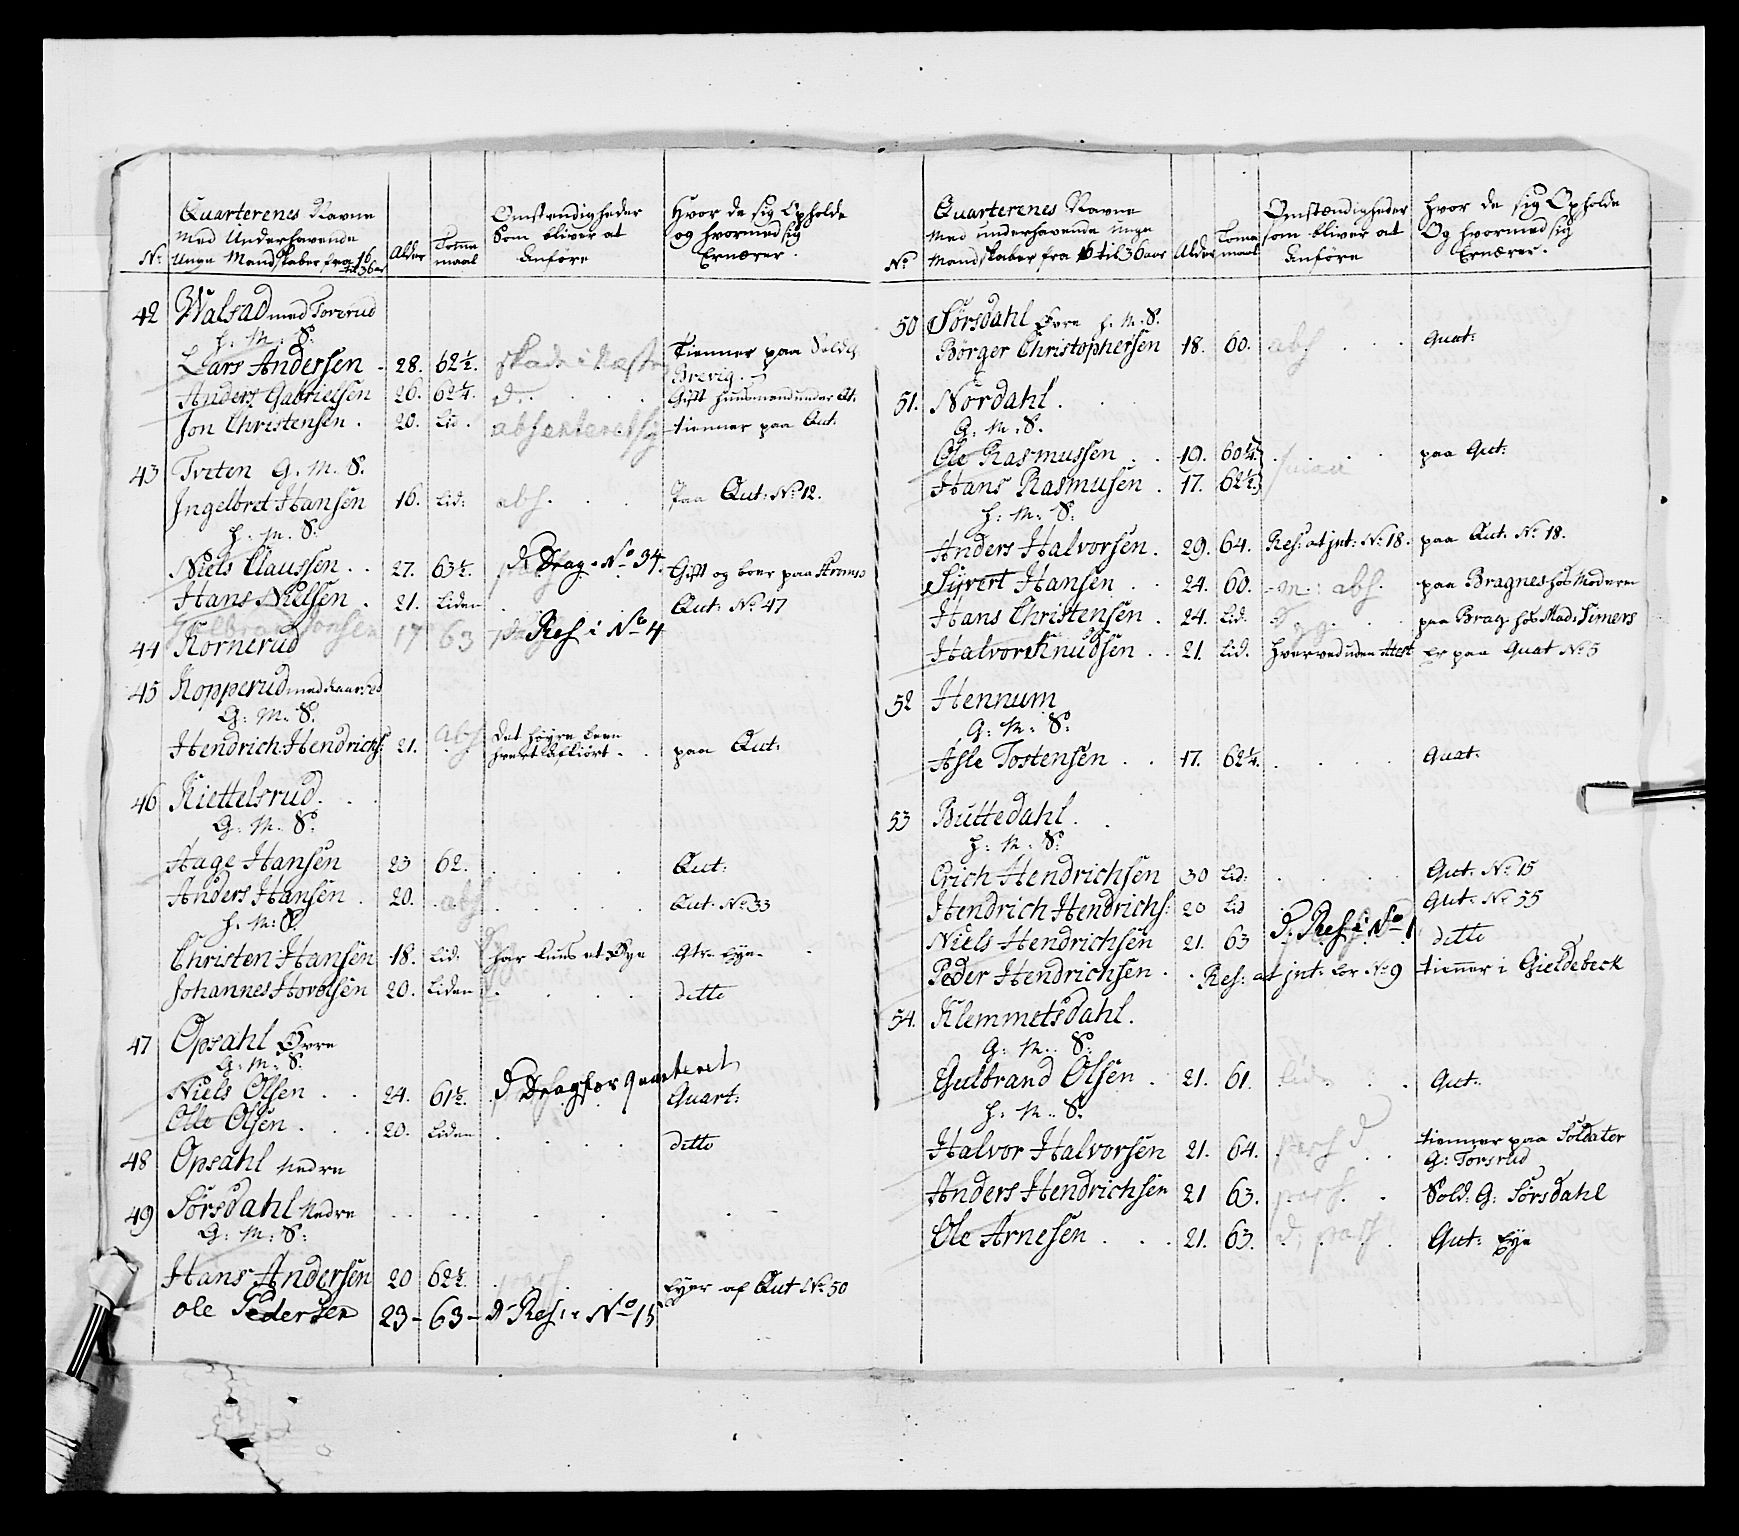 No. Quarterenes Navne Med Underhavende Unge Mandskaber fra 16 til 36 aar | Alder | Tomme maal | Omstendigheder Som bliver at Anføre | Hvor de sig Opholde og hvormed sig Ernærer.
42 Walstad med Torerud
H. M. S.
Lars Andersen - 28. 62½. skade i Tienner paa Brevig.
Anders Gabrielsen 26. 62¼. d. Gift huusmand under Qt.
Jon Christensen. 20. Lid. absenteret sig tienner paa Qut:
43 Tveten G. M. S.
Ingelbret Hansen 16. Lid: abs. Paa Qut: No. 12.
H. M. S.
Niels Claussen.. 27. 63½. d. Drag. No. 34. Gift og boer paa Strømsø
Hans Nielsen. 21. Liden Qut: No. 47
17 63 Res i No. 4
44 Kornerud
45 Kopperud med
G: M: S.
Hendrich Hendrichs: 21. abs Det høyre been paa Qut:
46 Kiettelsrud...
G: M: S.
Aage Hansen 23 62. Qut:
Anders Hansen. 20. abs Qut. No. 33
H. M: S.
Christen Hansen 18. Lid. har kuns et Øye Qtr. Eye.
Johannes Hovelsen 20. Liden ditto
47 Opsahl Øvre
G: M: S.
Niels Olsen.. 24. 61½. d Drag for Quarteret Quart:
Olle Olsen... 20. Liden ditto
48 Opsahl Nedre
49 Sørsdahl Nedre
G: M: S:
Hans Andersen 20 62½. Eyer af Qut No. 50
Ole Pedersen 23- 63- d. Res: i No. 15
No. Quarterenes Navne Med underhavende unge Mandskaber fra 16 til 36 aar | Alder | Tomme maal | Omstændigheder som bliver at Anføre | Hvor de sig Opholde Og hvormed sig Ernærer.
50 Sørsdahl Øvre H. M. S.
Børger Christophersen 18. 60. abs Quat:
51. Nordahl.
G: M: S.
Ole Rasmussen.. 19. 60¼ paa Qut:
Hans Rasmusen. 17. 62½
H. M. S:
Anders Halvorsen. 29. 64. Res: at jnt: No. 18. paa Qut. No. 18.
Syvert Hansen.. 24. 60. abs. paa Bragnes hos Moderen
Hans Christensen. 24. Lid. paa Brag. hos Mad: Simers
Halvor Knudsen.. 21. Lid. Hverved uden Er paa Quat No. 5
52 Hennum
G: M: S:
Asle Tostensen.. 17. 62¼. Quat:
53 Buttedahl.
H: M: S:
Erich Hendrichsen 30 Lid: Qut. No. 15
Hendrich Hendrichs: 20 Lid Qut: No. 55
Niels Hendrichsen 21. 63 d. Res i No. 1 ditto
Peder Hendrichsen. Res: at jnt: No. 9 tienner i Gieldebeck
54. Klemmetsdahl.
G: M: S:
Gulbrand Olsen. 21. 61. Lid. Qut:
H. M: S.
Halvor Halvorsen 21. 64. pass d tienner paa Soldater G: Torsrud
Anders Hendrichsen 21 63. pass. Sold: G: Sørsdahl
Ole Arnesen... 21. 63. d. pass Qut: Eye